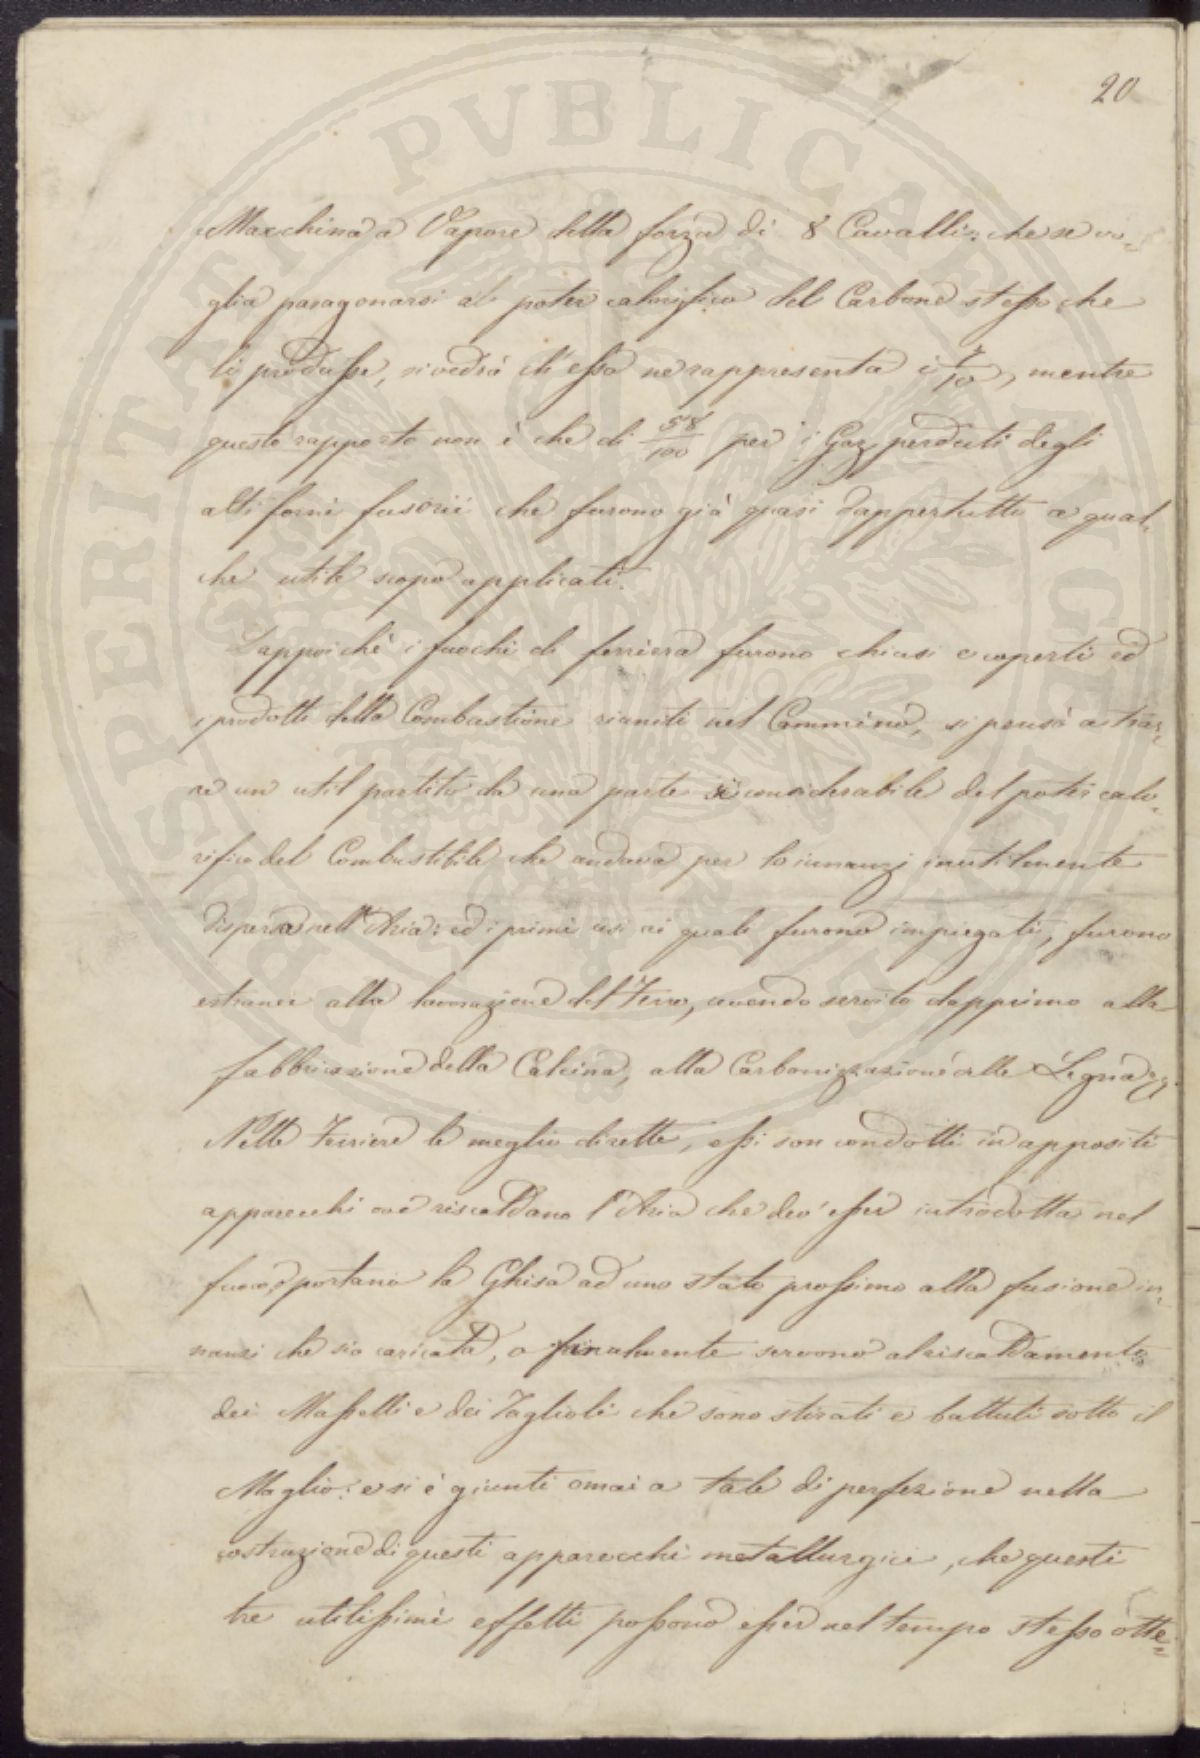 20
Macchina a Vapore della forza di 8 Cavalli: che se vo=
glia paragonarsi al poter calorifico del Carbone stesso che
li produsse, si vedrà ch'essa ne rappresenta i 7/10, mentre
questo rapporto non è che di 58/100 per i Gaz perduti degli
alti forni fusorii che furono già quasi dappertutto a qual=
che utile scopo applicati.
Dappoichè i fuochi di ferriera furono chiusi e coperti ed
i prodotti della Combustione riuniti nel Cammino, si pensò a trar=
re un util partito da una parte sì considerabile del poter calo=
rifico del Combustibile che andava per lo innanzi inutilmente
disperso nell'Aria: ed i primi usi ai quali furono impiegati, furono
estranei alla lavorazione del Ferro, avendo servito dapprima alla
fabbricazione della Calcina, alla Carbonizzazione delle Legna
Nelle Ferriere le meglio dirette, essi son condotti in appositi
apparecchi ove riscaldano l'Aria che dev'esser introdotta nel
fuoco, portano la Ghisa ad uno stato prossimo alla fusione in=
nanzi che sia caricata, o finalmente servono al riscaldamento
dei Masselli e dei Taglioli che sono stirati e battuti sotto il
Maglio: e si è giunti omai a tale di perfezione nella
costruzione di questi apparecchi metallurgici, che questi
tre utilissimi effetti possono esser nel tempo stesso otte=
PROSPERITATI PVBLICAE AVGENDAE